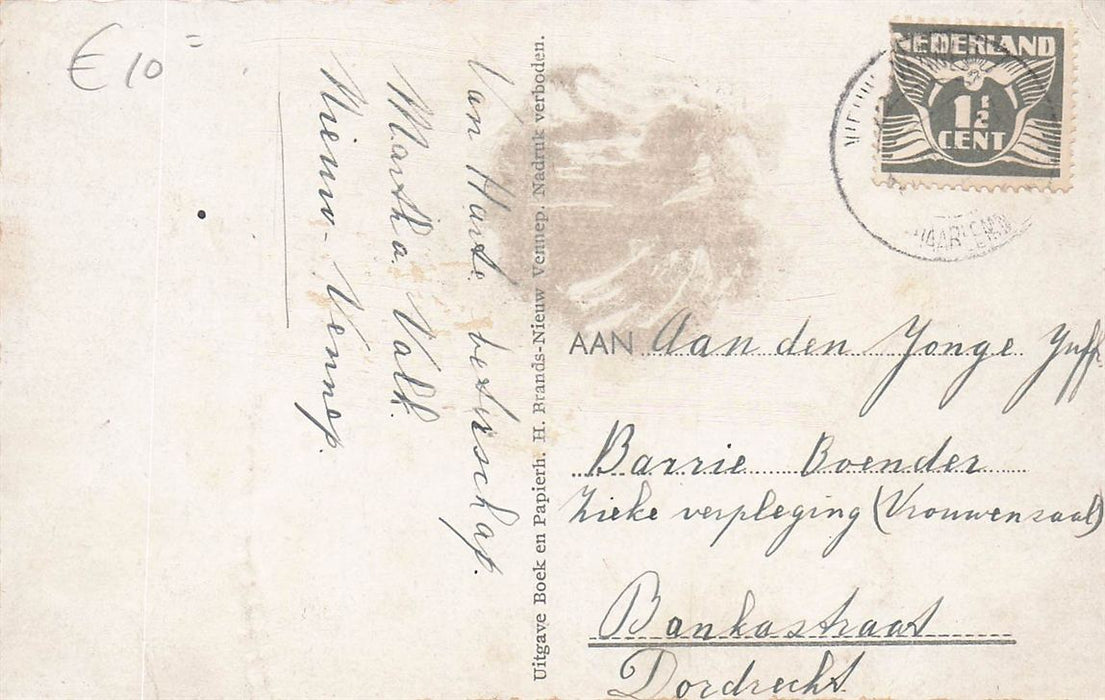 € 10 =
Van Harte beterschap.
Martha Valk.
Nieuw-Vennep.
Uitgave Boek en Papierh. H. Brands-Nieuw Vennep. Nadruk verboden.
NEDERLAND
1½
CENT
AAN Aan den Jonge Juff
Barrie Boender
Zieke verpleging (Vrouwenzaal)
Bankastraat
Dordrecht